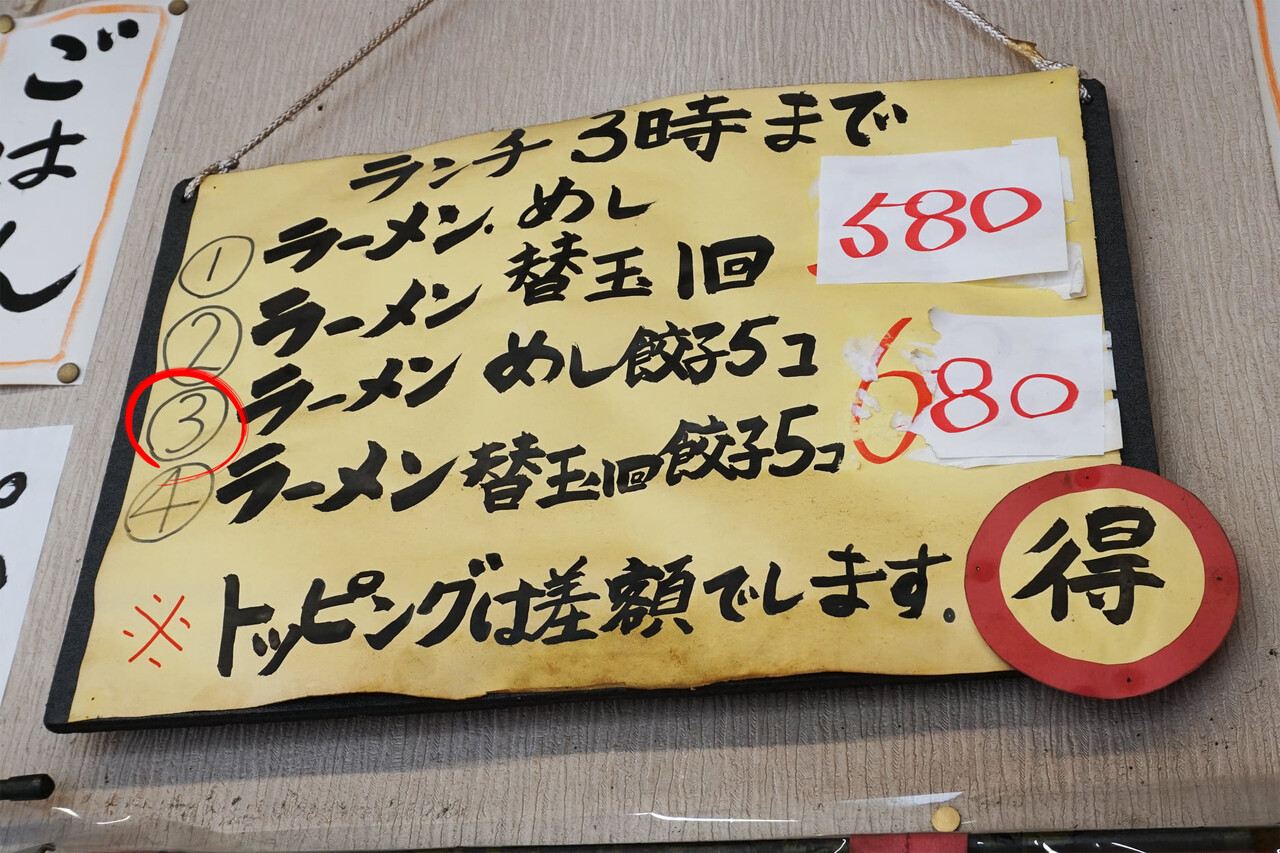 ごはん
ランチ 3時まで
① ラーメン めし 580
② ラーメン 替玉 1回
③ ラーメン めし 餃子5コ 680
④ ラーメン 替玉1回 餃子5コ
※ トッピングは差額でします。
得